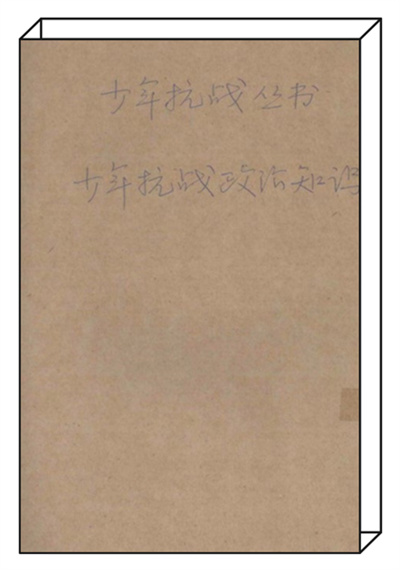 少年抗战丛书
少年抗战政治知识